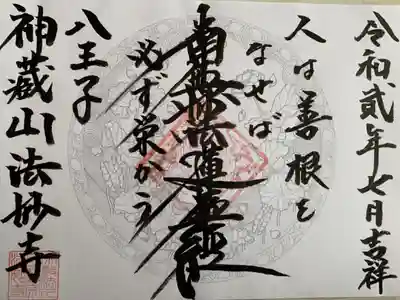 令和貳年七月吉祥
人は善根を
なせば
南無妙法蓮華経
必ず栄かう
八王子
神蔵山法妙寺